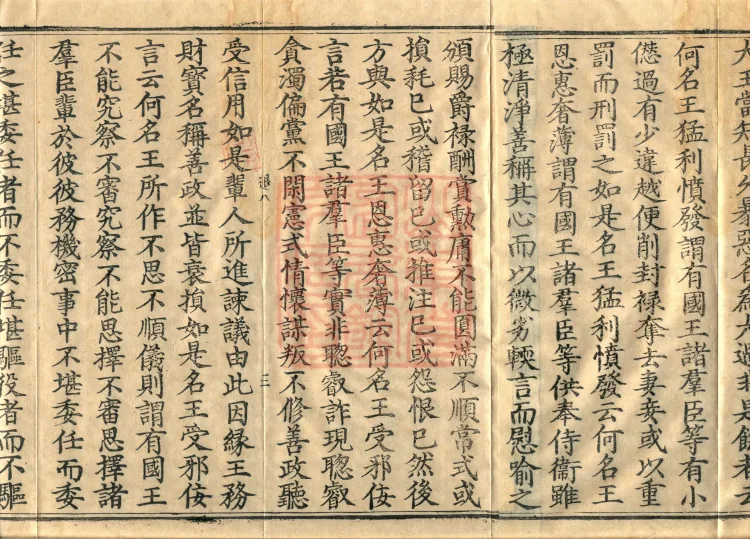 何名王猛利憤發謂有國王諸羣臣等有小
僽過有少違越便削封禄奪去妻妾或以重
罰而刑罰之如是名王猛利憤發云何名王
恩惠奢薄謂有國王諸羣臣等供奉侍衞雖
極清淨善稱其心而以微劣輭言而慰喻之
頒賜爵禄酬賞勲庸不能圓滿不順常式或
損耗已或稽留已或推注已或怨恨已然後
方與如是名王恩惠奢薄云何名王受邪佞
言若有國王諸羣臣等實非聰叡詐現聰叡
貪濁偏黨不閑憲式情懷謀叛不修善政聽
受信用如是輩人所進諫議由此因緣王務
財寶名稱善政並皆衰損如是名王受邪佞
言云何名王所作不思不順儀則謂有國王
不能究察不審究察不能思擇不審思擇諸
羣臣輩於彼彼務機密事中不堪委任而委
任之堪委任者而不委任堪驅役者而不驅
三